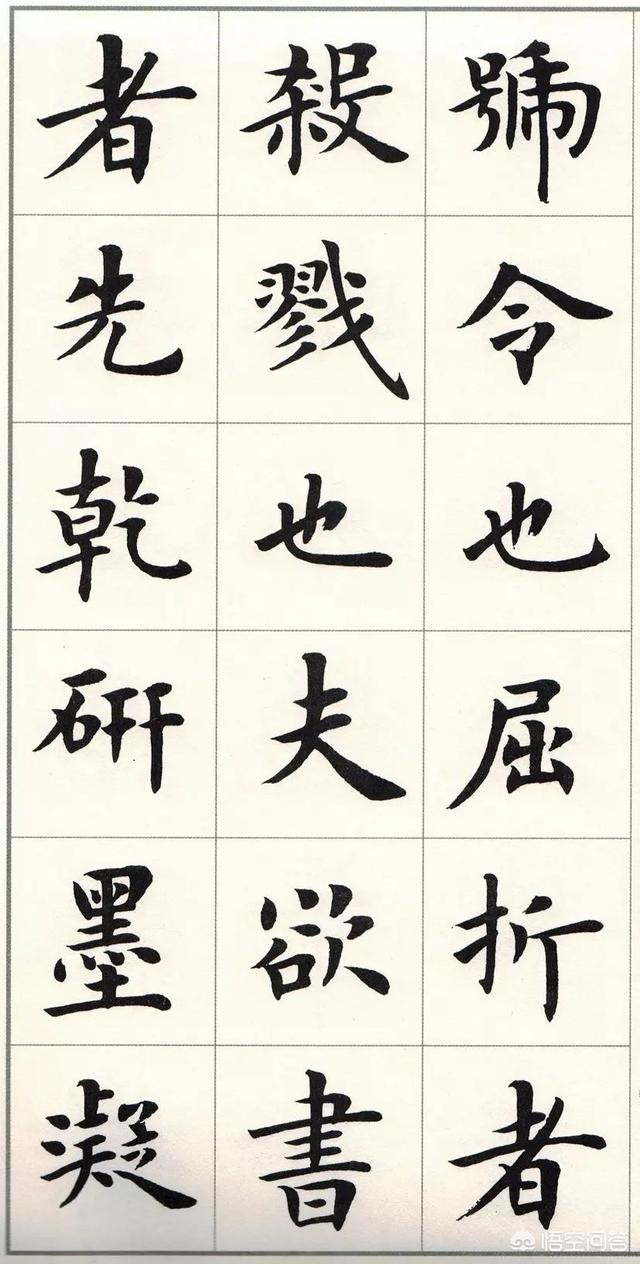 號令也屈折者
殺戮也夫欲書
者先乾研墨凝
悟空问答